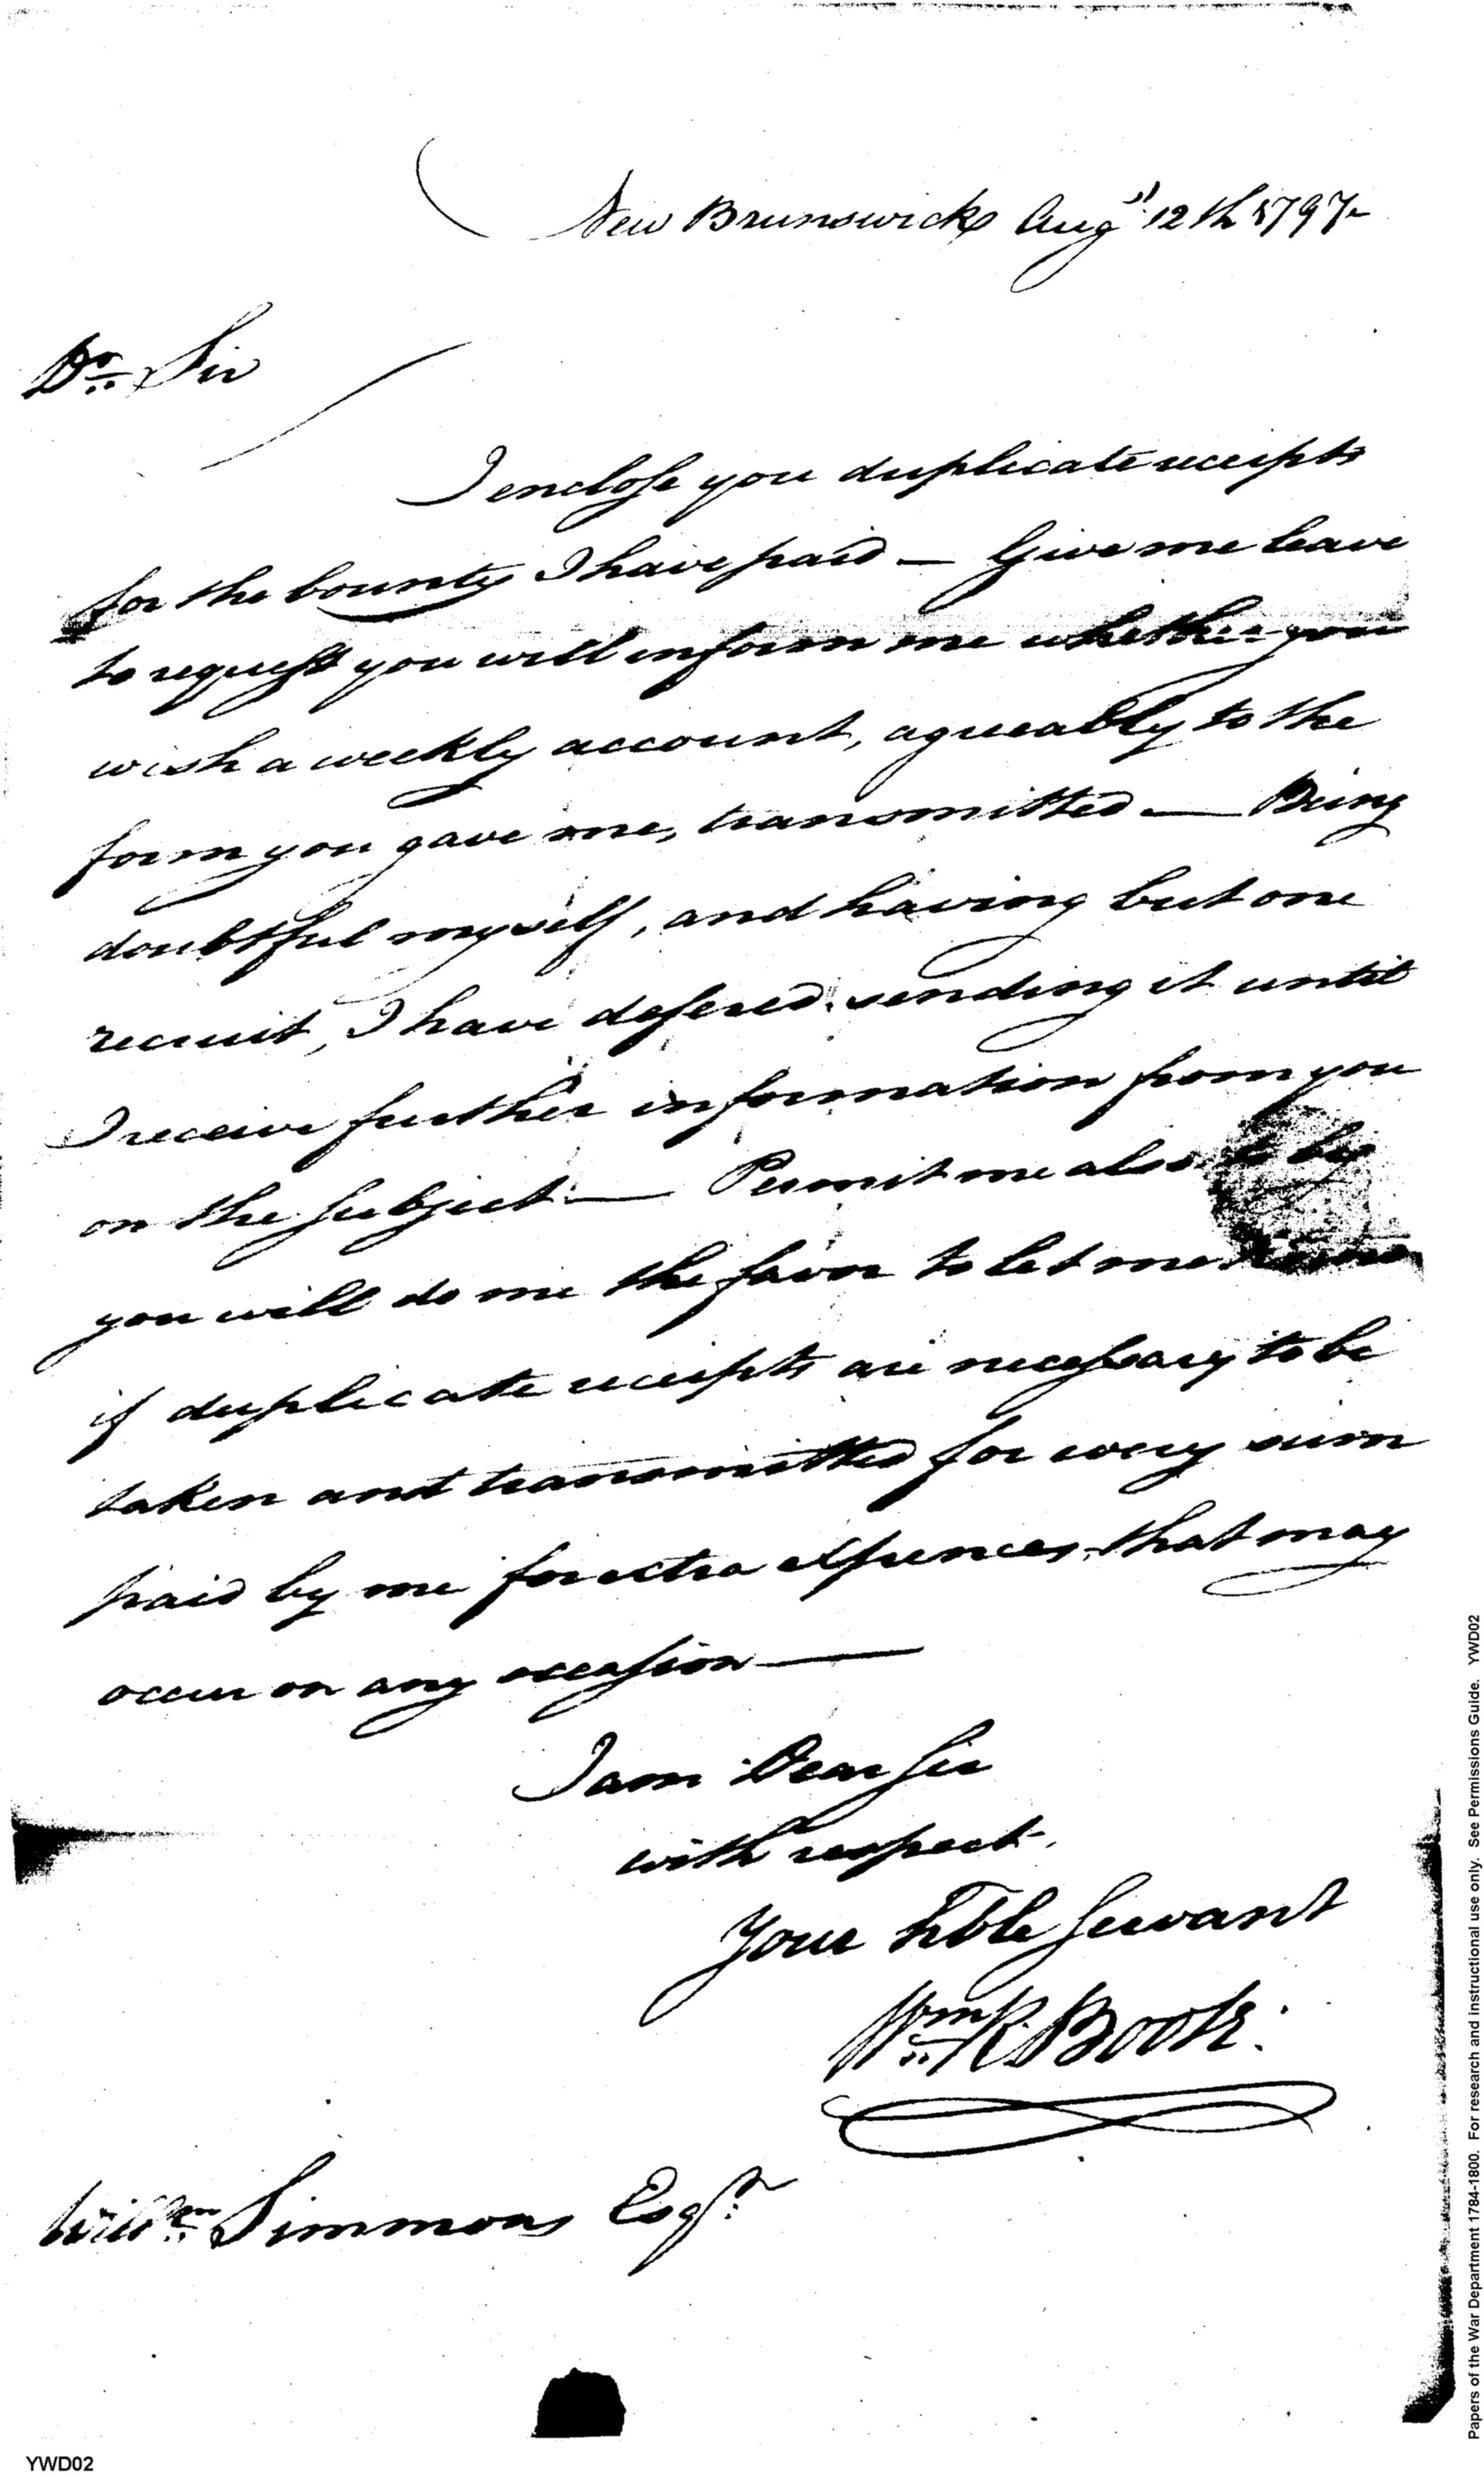 New Brunswick Augt 12th 1797
Dr Sir
I enclose you duplicate receipts
for the bounty I have paid — Give me leave
to request you will inform me whether you
wish a weekly account, agreeably to the
form you gave me, transmitted — Being
doubtful myself, and having but one
recruit, I have defered sending it until
I receive further information from you
on the subject — Permit me also to beg
you will do me the favor to let me know
if duplicate receipts are necessary to be
taken and transmitted for every sum
paid by me for extra expences that may
occur on any occasion —
I am Dear Sir
with respect
Your hble Servant
Wm R Boote.
Willm Simmons Esqr.
YWD02
Papers of the War Department 1784-1800. For research and instructional use only. See Permissions Guide. YWD02